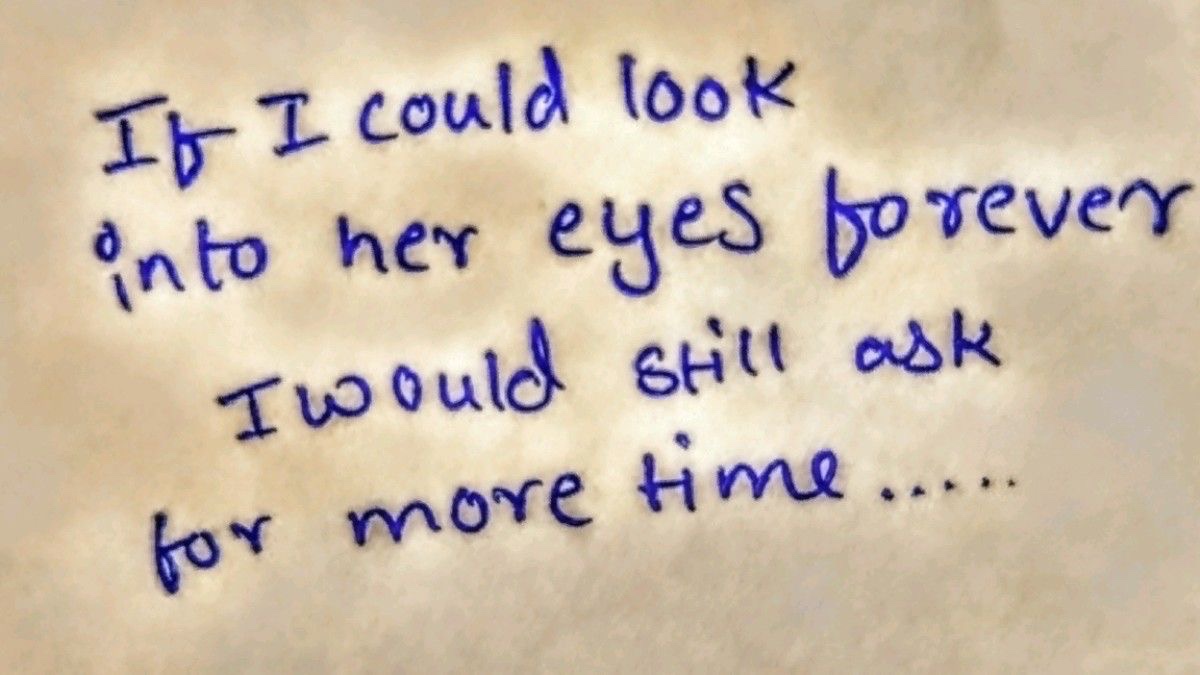 If I could look
into her eyes forever
I would still ask
for more time.....